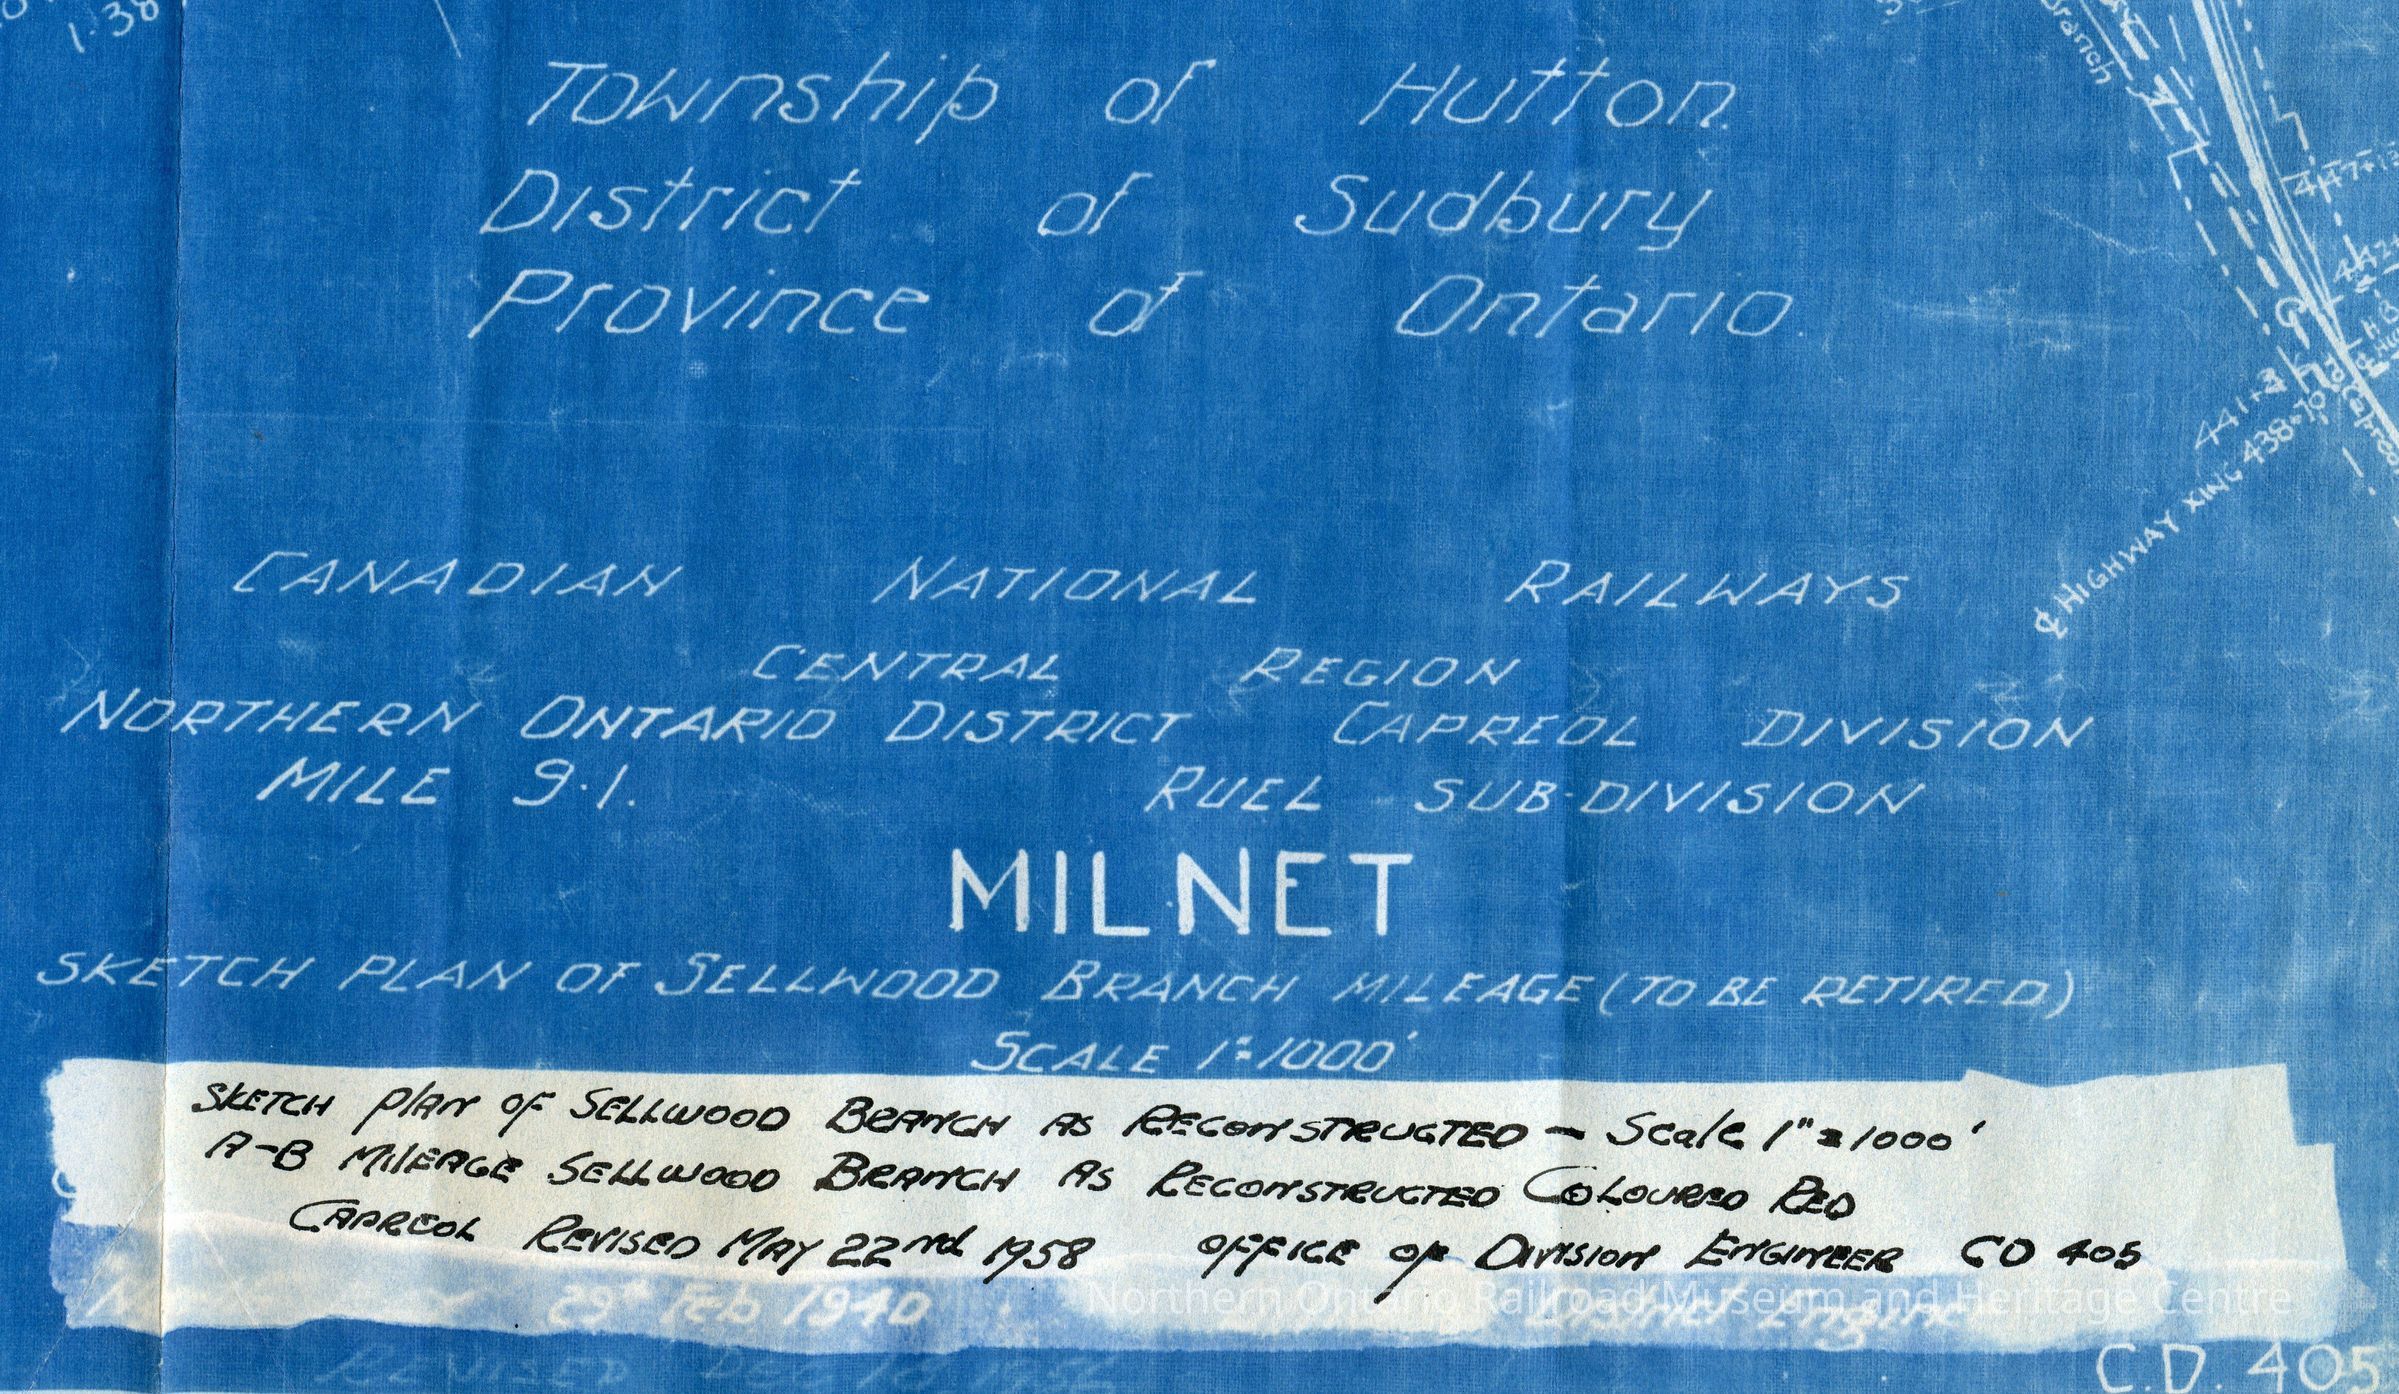 1.38
Branch
Township of Hutton.
District of Sudbury
Province of Ontario.
441+3
℄ HIGHWAY XING 438+70
CANADIAN NATIONAL RAILWAYS
CENTRAL REGION
NORTHERN ONTARIO DISTRICT CAPREOL DIVISION
MILE 9.1. RUEL SUB-DIVISION
MILNET
SKETCH PLAN OF SELLWOOD BRANCH MILEAGE (TO BE RETIRED.)
SCALE 1"=1000'
SKETCH PLAN OF SELLWOOD BRANCH AS RECONSTRUCTED - Scale 1"=1000'
A-B MILEAGE SELLWOOD BRANCH AS RECONSTRUCTED COLOURED RED
CAPREOL REVISED MAY 22nd 1958 OFFICE OF DIVISION ENGINEER CD 405
29th Feb 1940 District Engine
Northern Ontario Railroad Museum and Heritage Centre
REVISED DEC
C.D. 405